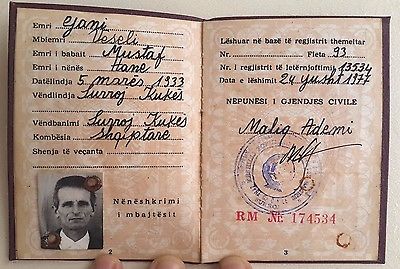 Emri Gani
Mbiemri Veseli
Emri i babait Mustaf
Emri i nënës Hane
Datëlindja 5 mars 1933
Vendlindja Surroj Kukës
Vendbanimi Surroj Kukës
Kombësia Shqiptare
Shenja të veçanta
Nënëshkrimi
i mbajtësit
2
Lëshuar në bazë të regjistrit themeltar
Nr. Fleta 93
Nr. i regjistrit të letërnjoftimi 19534
Data e lëshimit 24 gusht 1977
NËPUNËSI I GJENDJES CIVILE
Maliq Ademi
RM № 174534
3